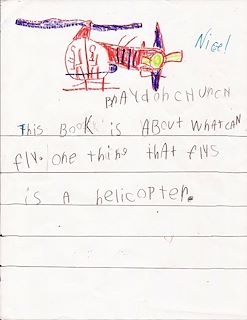 Nice!
BRAYdON CHURCH
This BOOK is ABOUT WHAT CAN
FLY. ONE thing tHAt FLYS
is A helicopter.